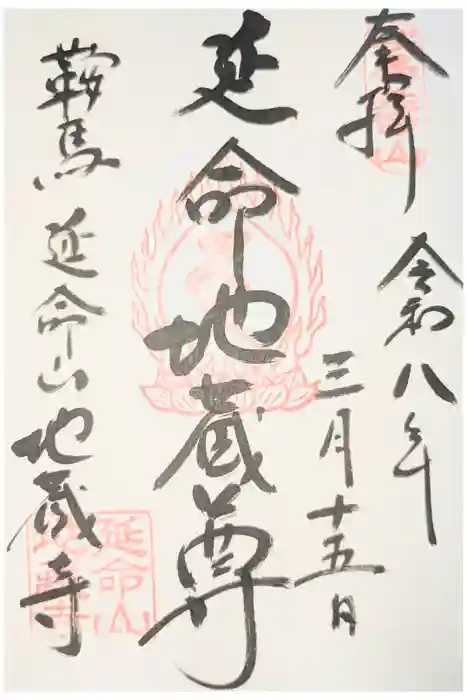 奉拝
令和八年
三月十五日
延命地蔵尊
鞍馬 延命山 地蔵寺
延命山
地蔵寺